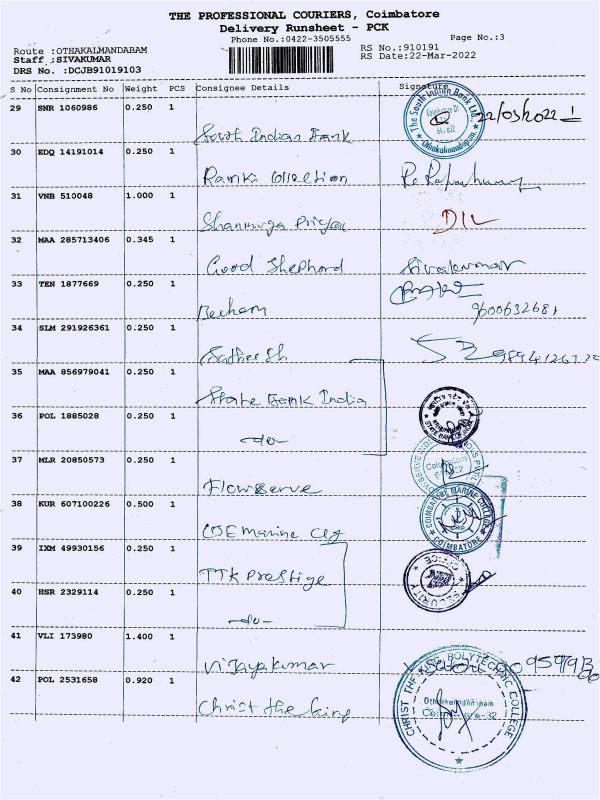 THE PROFESSIONAL COURIERS, Coimbatore
Delivery Runsheet - PCK
Phone No.:0422-3505555
Page No.:3
Route :OTHAKALMANDABAM
RS No.:910191
Staff :SIVAKUMAR
RS Date:22-Mar-2022
DRS No. :DCJB91019103
S No Consignment No Weight PCS Consignee Details Signature
29 SNR 1060986 0.250 1
South Indian Bank
The South Indian Bank Ltd.
Othakalmandapam
22/03/2022
30 EDQ 14191014 0.250 1
Ramki Collection
31 VNB 510048 1.000 1
Shanmuga Priya
D/L
32 MAA 285713406 0.345 1
Good Shephord Sivakumar
33 TEN 1877669 0.250 1
9600632681
34 SLM 291926361 0.250 1
Satheesh
35 MAA 856979041 0.250 1
State Bank India
STATE BANK OF INDIA
36 POL 1885028 0.250 1
-do-
37 MLR 20850573 0.250 1
Flowserve
38 KUR 607100226 0.500 1
CSE marine clg
COIMBATORE MARINE COLLEGE
COIMBATORE
39 IXM 49930156 0.250 1
TTK Prestige
SECURITY OFFICE
40 HSR 2329114 0.250 1
-do-
41 VLI 173980 1.400 1
Vijayakumar
42 POL 2531658 0.920 1
Christ the king
CHRIST THE KING POLYTECHNIC COLLEGE
Othakkalmandapam